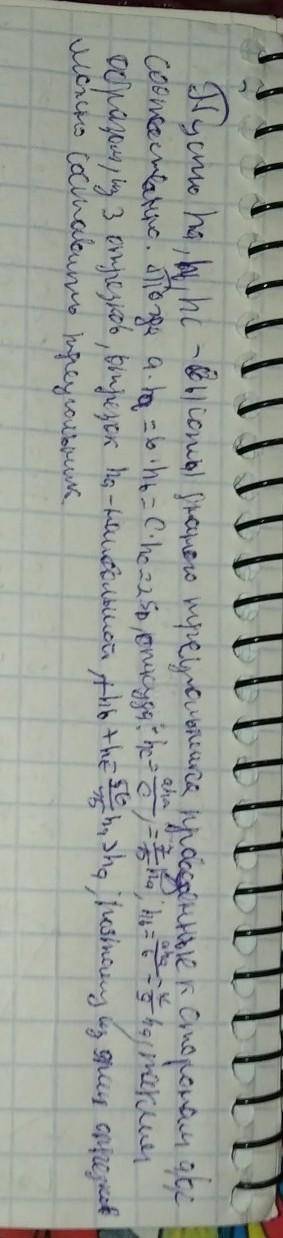 Пусть ha, hb, hc - высоты данного треугольника проведенные к сторонам abc
соответственно. Тогда a·ha = b·hb = c·hc = 2S, откуда: hc = aha/c = ha; hb = aha/b = ha, таким
образом, из 3 отрезков, отрезок ha - наибольший, hb + hc = ha > ha, поэтому из этих отрезков
можно составить треугольник